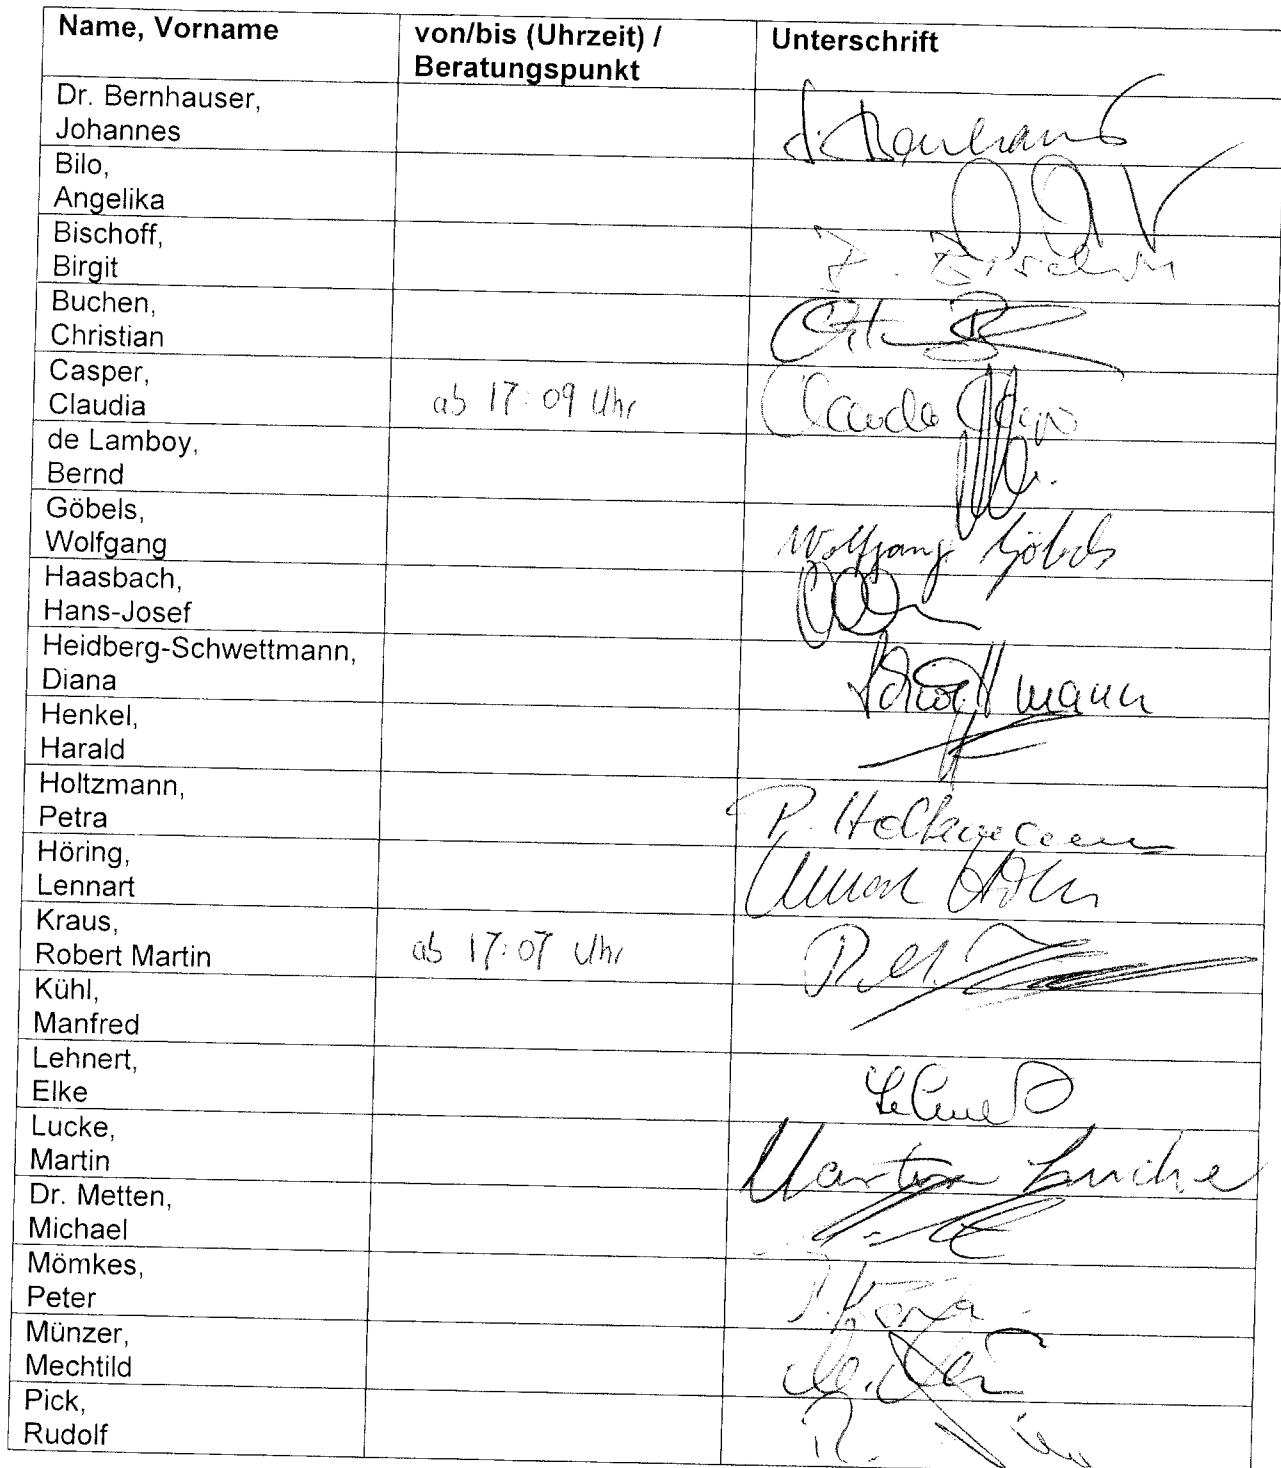 Name, Vorname
von/bis (Uhrzeit) /
Beratungspunkt
Unterschrift
Dr. Bernhauser,
Johannes
Bilo,
Angelika
Bischoff,
Birgit
Buchen,
Christian
Casper,
Claudia
ab 17:09 Uhr
Claudia
de Lamboy,
Bernd
Göbels,
Wolfgang
Wolfgang Göbels
Haasbach,
Hans-Josef
Heidberg-Schwettmann,
Diana
Henkel,
Harald
Holtzmann,
Petra
P. Holtzmann
Höring,
Lennart
Kraus,
Robert Martin
ab 17:07 Uhr
R. M.
Kühl,
Manfred
Lehnert,
Elke
Lehnert
Lucke,
Martin
Martin Lucke
Dr. Metten,
Michael
Mömkes,
Peter
Münzer,
Mechtild
Pick,
Rudolf